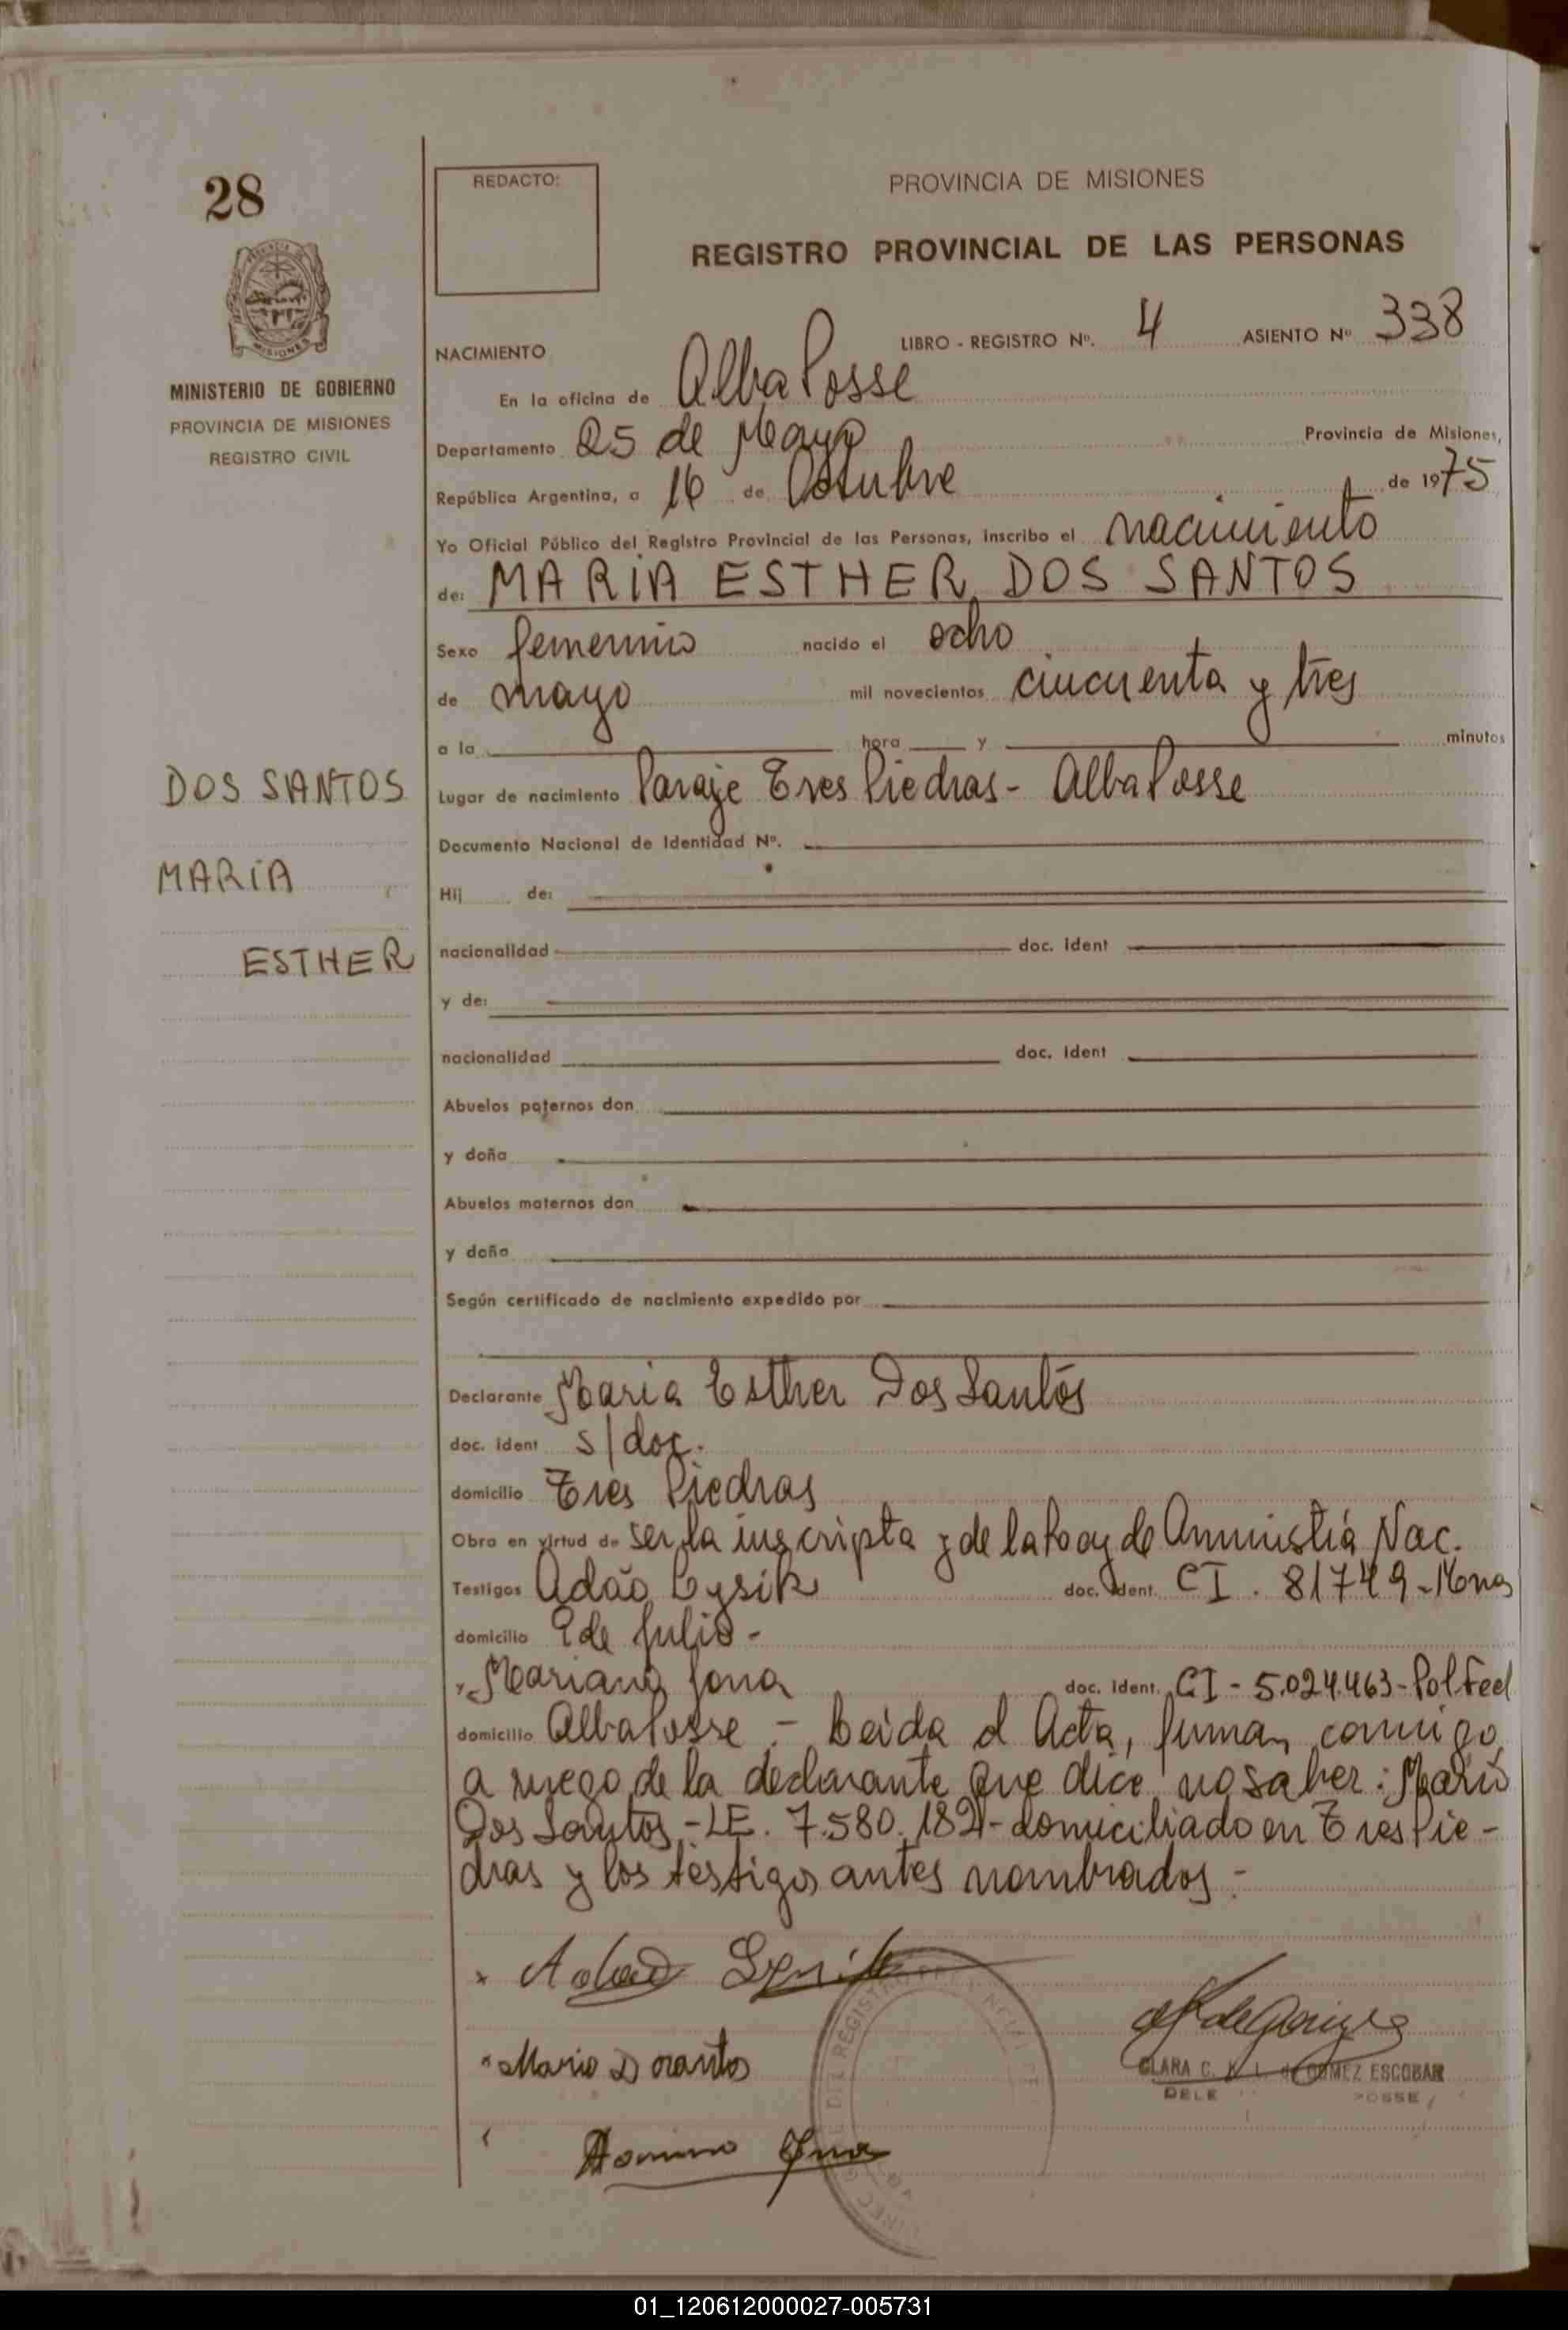 28
REDACTO:
PROVINCIA DE MISIONES
REGISTRO PROVINCIAL DE LAS PERSONAS
MISIONES
MINISTERIO DE GOBIERNO
PROVINCIA DE MISIONES
REGISTRO CIVIL
NACIMIENTO LIBRO - REGISTRO Nº. 4 ASIENTO Nº 338
En la oficina de Alba Posse
Departamento 25 de Mayo Provincia de Misiones,
República Argentina, a 16 de Octubre de 1975
Yo Oficial Público del Registro Provincial de las Personas, inscribo el nacimiento
de: MARIA ESTHER DOS SANTOS
Sexo femenino nacido el ocho
de mayo mil novecientos cincuenta y tres
a la hora y minutos
DOS SANTOS
MARIA
ESTHER
Lugar de nacimiento Paraje Tres Piedras - Alba Posse
Documento Nacional de Identidad Nº.
Hij de:
nacionalidad doc. ident
y de:
nacionalidad doc. ident
Abuelos paternos don
y doña
Abuelos maternos don
y doña
Según certificado de nacimiento expedido por
Declarante Maria Esther Dos Santos
doc. ident s/doc.
domicilio Tres Piedras
Obra en virtud de ser la inscripta y de la de Amnistia Nac.
Testigos Adão doc. ident. CI. 81749 - Mnes
domicilio 9 de Julio -
y Mariano doc. ident. CI - 5.024.463 - Pol Fed
domicilio Alba Posse - Leida el Acta, firman conmigo
a ruego de la declarante que dice no saber: Mario
Dos Santos - LE. 7.580.182 - domiciliado en Tres Pie-
dras y los testigos antes nombrados -
Mario D santos
CLARA C. de GOMEZ ESCOBAR
DELE POSSE
01_120612000027-005731